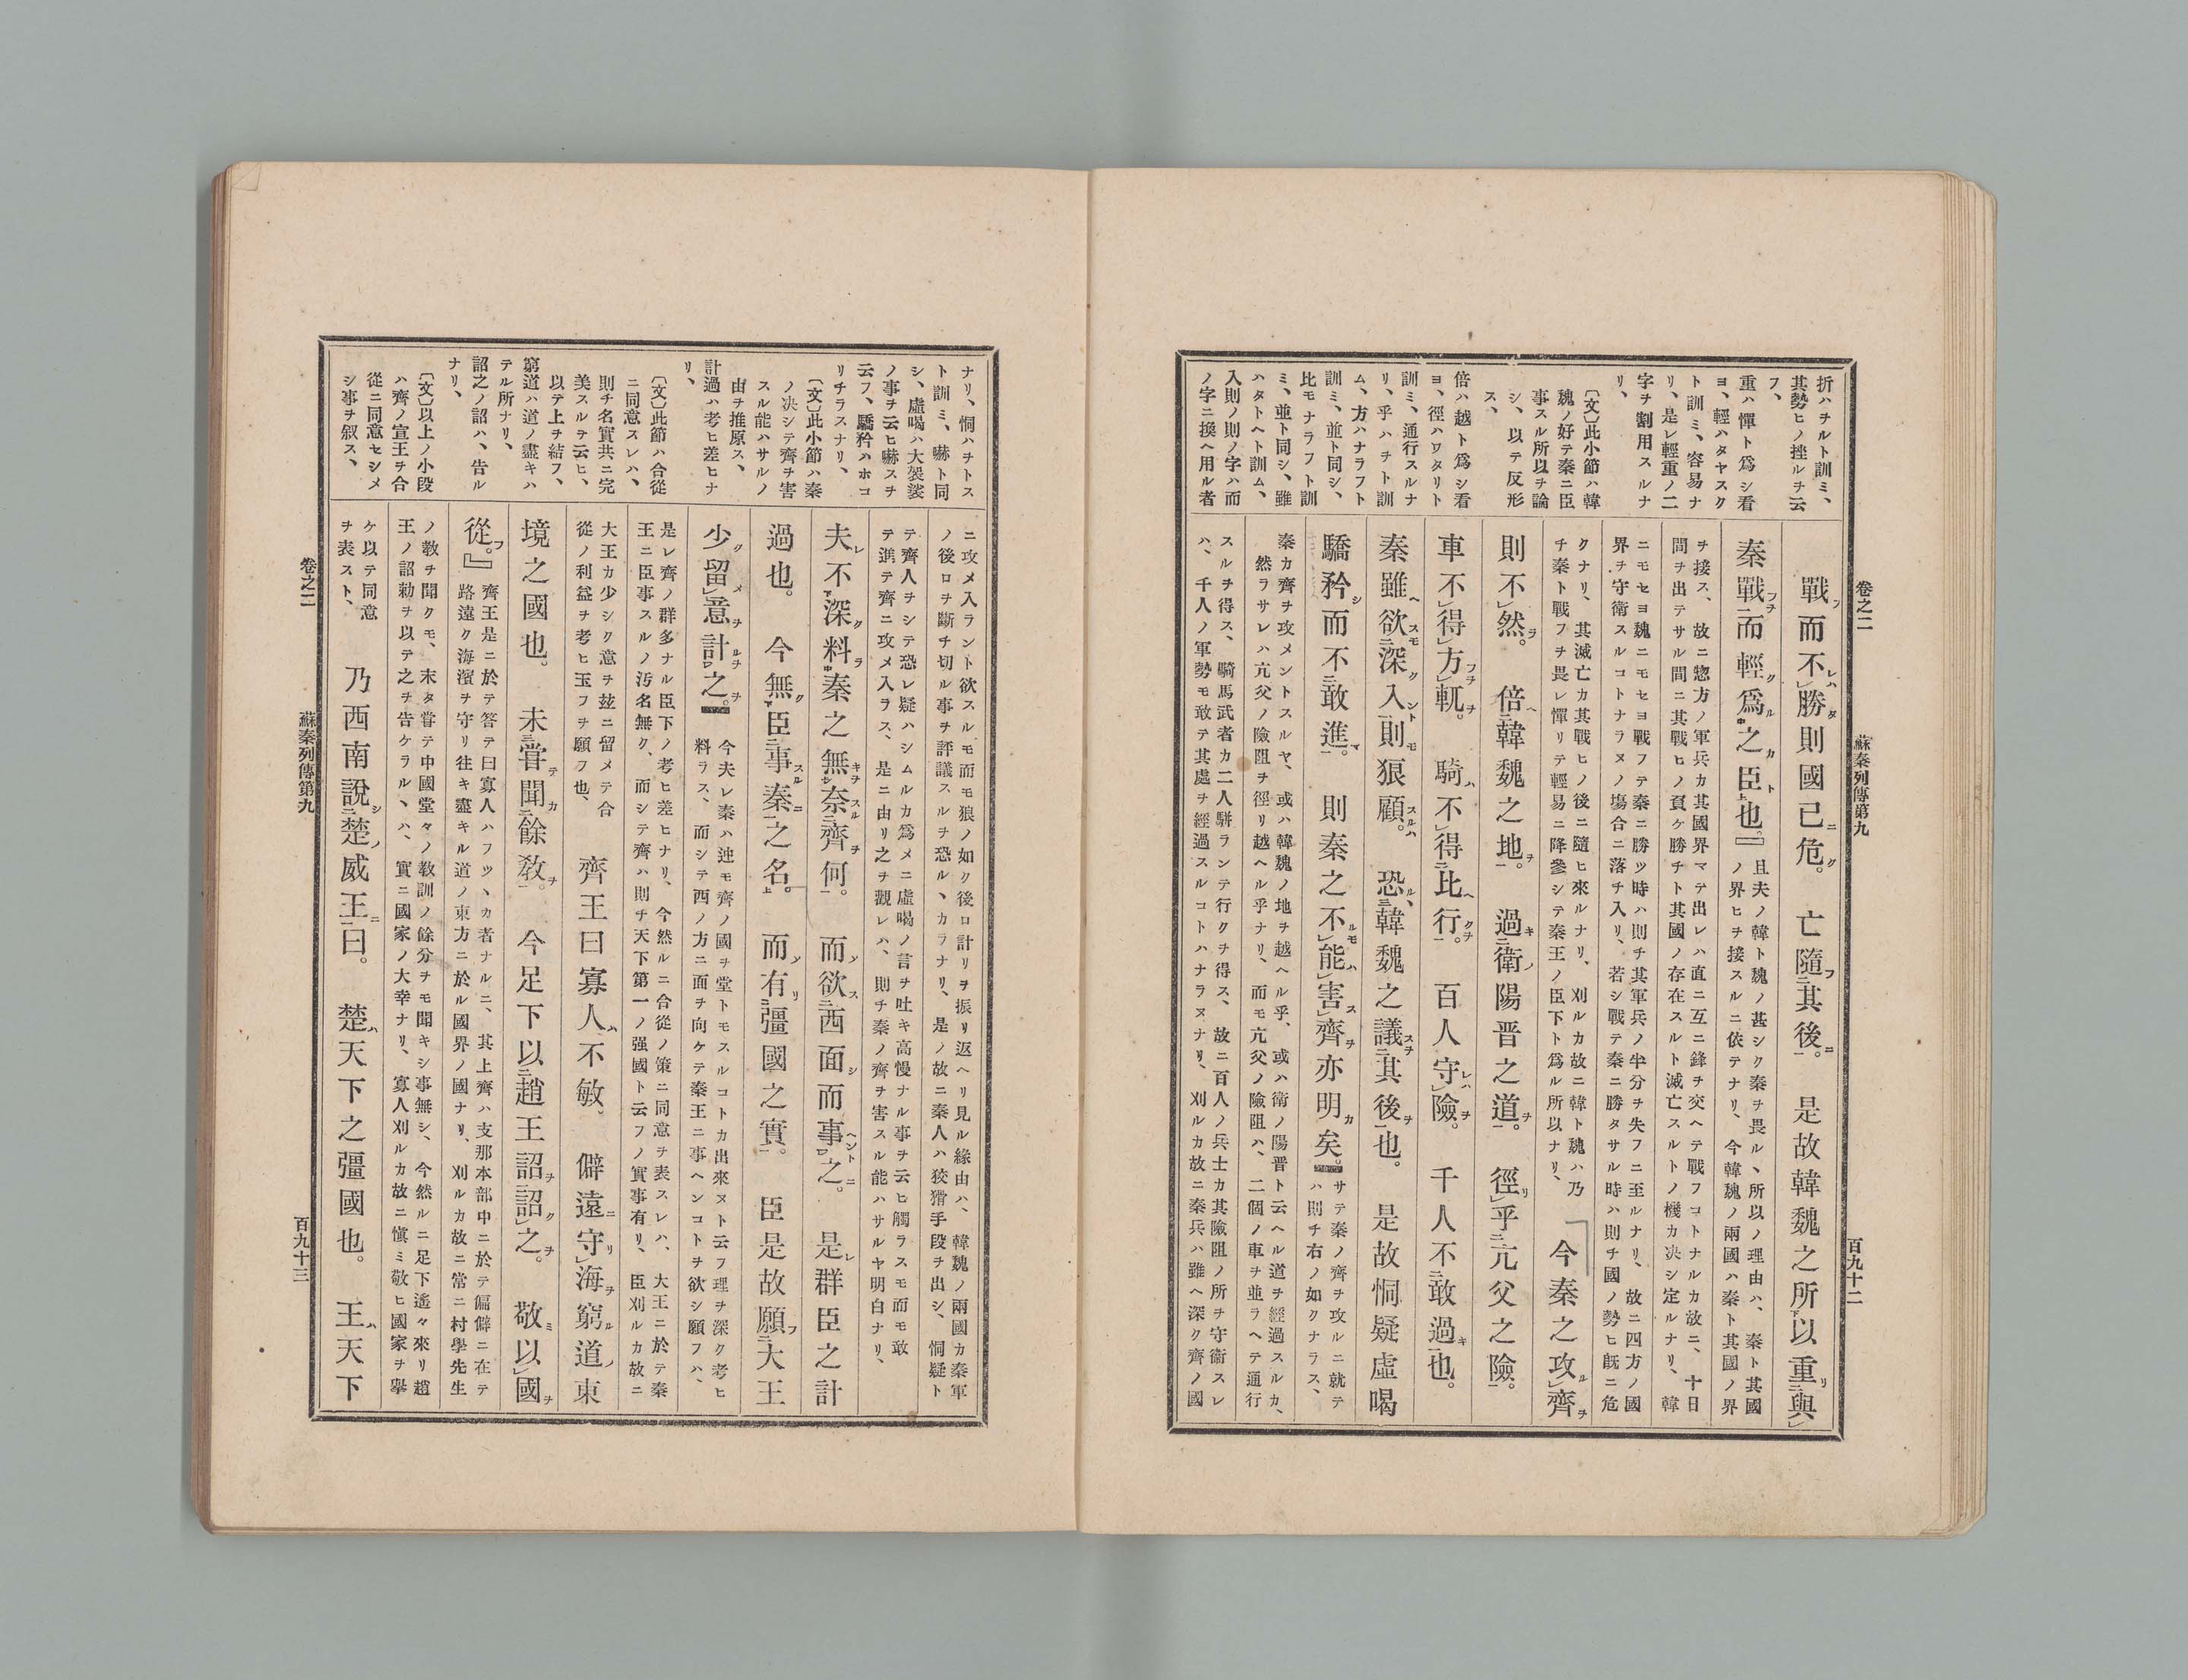 卷之二　蘇秦列傳第九　百九十二
折ハチルト訓ミ、
其勢ヒノ挫ルヲ云
フ、
重ハ憚ト爲シ看
ヨ、輕ハタヤスク
ト訓ミ、容易ナ
リ、是レ輕重ノ二
字ヲ割用スルナ
リ、
〔文〕此小節ハ韓
魏ノ好テ秦ニ臣
事スル所以ヲ論
シ、以テ反形
ス、
倍ハ越ト爲シ看
ヨ、徑ハワタリト
訓ミ、通行スルナ
リ、乎ハヲト訓
ム、方ハナラフト
訓ミ、並ト同シ、
比モナラフト訓
ミ、並ト同シ、雖
ハタトヘト訓ム、
入則ノ則ノ字ハ而
ノ字ニ換ヘ用ル者
戰而不勝則國已危。亡隨其後。是故韓魏之所以重與
秦戰而輕爲之臣也。』
且夫ノ韓ト魏ノ甚シク秦ヲ畏ルヽ所以ノ理由ハ、秦ト其國
ノ界ヒヲ接スルニ依テナリ、今韓魏ノ兩國ハ秦ト其國ノ界
ヲ接ス、故ニ惣方ノ軍兵カ其國界マテ出レハ直ニ互ニ鋒ヲ交ヘテ戰フコトナルカ故ニ、十日
間ヲ出テサル間ニ其戰ヒノ負ケ勝チト其國ノ存在スルト滅亡スルトノ機カ決シ定ルナリ、韓
ニモセヨ魏ニモセヨ戰フテ秦ニ勝ツ時ハ則チ其軍兵ノ半分ヲ失フニ至ルナリ、故ニ四方ノ國
界ヲ守衛スルコトナラヌノ塲合ニ落チ入リ、若シ戰テ秦ニ勝タサル時ハ則チ國ノ勢ヒ既ニ危
クナリ、其滅亡カ其戰ヒノ後ニ隨ヒ來ルナリ、刈ルカ故ニ韓ト魏ハ乃
チ秦ト戰フヲ畏レ憚リテ輕易ニ降參シテ秦王ノ臣下ト爲ル所以ナリ、
「今秦之攻齊
則不然。倍韓魏之地。過衛陽晋之道。徑乎亢父之險。
車不得方軏。騎不得比行。百人守險。千人不敢過也。
秦雖欲深入則狼顧。恐韓魏之議其後也。是故恫疑虛喝
驕矜而不敢進。則秦之不能害齊亦明矣。
サテ秦ノ齊ヲ攻ルニ就テ
ハ則チ右ノ如クナラス、
秦カ齊ヲ攻メントスルヤ、或ハ韓魏ノ地ヲ越ヘル乎、或ハ衛ノ陽晋ト云ヘル道ヲ經過スルカ、
然ラサレハ亢父ノ險阻ヲ徑リ越ヘル乎ナリ、而モ亢父ノ險阻ハ、二個ノ車ヲ並ラヘテ通行
スルヲ得ス、騎馬武者カ二人駢ランテ行クヲ得ス、故ニ百人ノ兵士カ其險阻ノ所ヲ守衛スレ
ハ、千人ノ軍勢モ敢テ其處ヲ經過スルコトハナラヌナリ、刈ルカ故ニ秦兵ハ雖ヘ深ク齊ノ國
ナリ、恫ハヲトス
ト訓ミ、嚇ト同
シ、虛喝ハ大袈裟
ノ事ヲ云ヒ嚇スヲ
云フ、驕矜ハホコ
リヲラスナリ、
〔文〕此小節ハ秦
ノ決シテ齊ヲ害
スル能ハサルノ
由ヲ推原ス、
計過ハ考ヒ差ヒナ
リ、
〔文〕此節ハ合從
ニ同意スレハ、
則チ名實共ニ完
美スルヲ云ヒ、
以テ上ヲ結フ、
窮道ハ道ノ盡キハ
テル所ナリ、
詔之ノ詔ハ、告ル
ナリ、
〔文〕以上ノ小段
ハ齊ノ宣王ヲ合
從ニ同意セシメ
シ事ヲ叙ス、
ニ攻メ入ラント欲スルモ而モ狼ノ如ク後ロ計リヲ振リ返ヘリ見ル縁由ハ、韓魏ノ兩國カ秦軍
ノ後ロヲ斷チ切ル事ヲ評議スルヲ恐ルヽカラナリ、是ノ故ニ秦人ハ狡猾手段ヲ出シ、恫疑ト
テ齊人ヲシテ恐レ疑ハシムルカ爲メニ虛喝ノ言ヲ吐キ高慢ナル事ヲ云ヒ觸ラスモ而モ敢
テ進テ齊ニ攻メ入ラス、是ニ由リ之ヲ觀レハ、則チ秦ノ齊ヲ害スル能ハサルヤ明白ナリ、
夫不深料秦之無奈齊何。而欲西面而事之。是群臣之計
過也。今無臣事秦之名。而有彊國之實。臣是故願大王
少留意計之。
今夫レ秦ハ迚モ齊ノ國ヲ堂トモスルコトカ出來ヌト云フ理ヲ深ク考ヒ
料ラス、而シテ西ノ方ニ面ヲ向ケテ秦王ニ事ヘンコトヲ欲シ願フハ、
是レ齊ノ群多ナル臣下ノ考ヒ差ヒナリ、今然ルニ合從ノ策ニ同意ヲ表スレハ、大王ニ於テ秦
王ニ臣事スルノ汚名無ク、而シテ齊ハ則チ天下第一ノ强國ト云フノ實事有リ、臣刈ルカ故ニ
大王カ少シク意ヲ玆ニ留メテ合
從ノ利益ヲ考ヒ玉フヲ願フ也、
齊王曰寡人不敏。僻遠守海窮道東
境之國也。未甞聞餘敎。今足下以趙王詔詔之。敬以國
從。』
齊王是ニ於テ答テ曰寡人ハフツヽカ者ナルニ、其上齊ハ支那本部中ニ於テ偏僻ニ在テ
路遠ク海濱ヲ守リ往キ盡キル道ノ東方ニ於ル國界ノ國ナリ、刈ルカ故ニ常ニ村學先生
ノ敎ヲ聞クモ、未タ甞テ中國堂々ノ敎訓ノ餘分ヲモ聞キシ事無シ、今然ルニ足下遙々來リ趙
王ノ詔勅ヲ以テ之ヲ告ケラルヽハ、實ニ國家ノ大幸ナリ、寡人刈ルカ故ニ愼ミ敬ヒ國家ヲ擧
ケ以テ同意
ヲ表スト、
乃西南說楚威王曰。楚天下之彊國也。王天下
卷之二　蘇秦列傳第九　百九十三